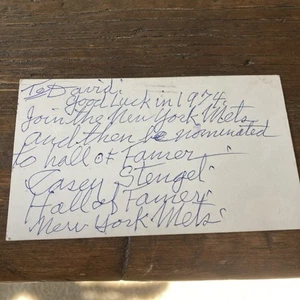 To David:
Good Luck in 1974
Join the New York Mets
and then be nominated
to hall of famer
Casey Stengel
Hall of Famer
New York Mets